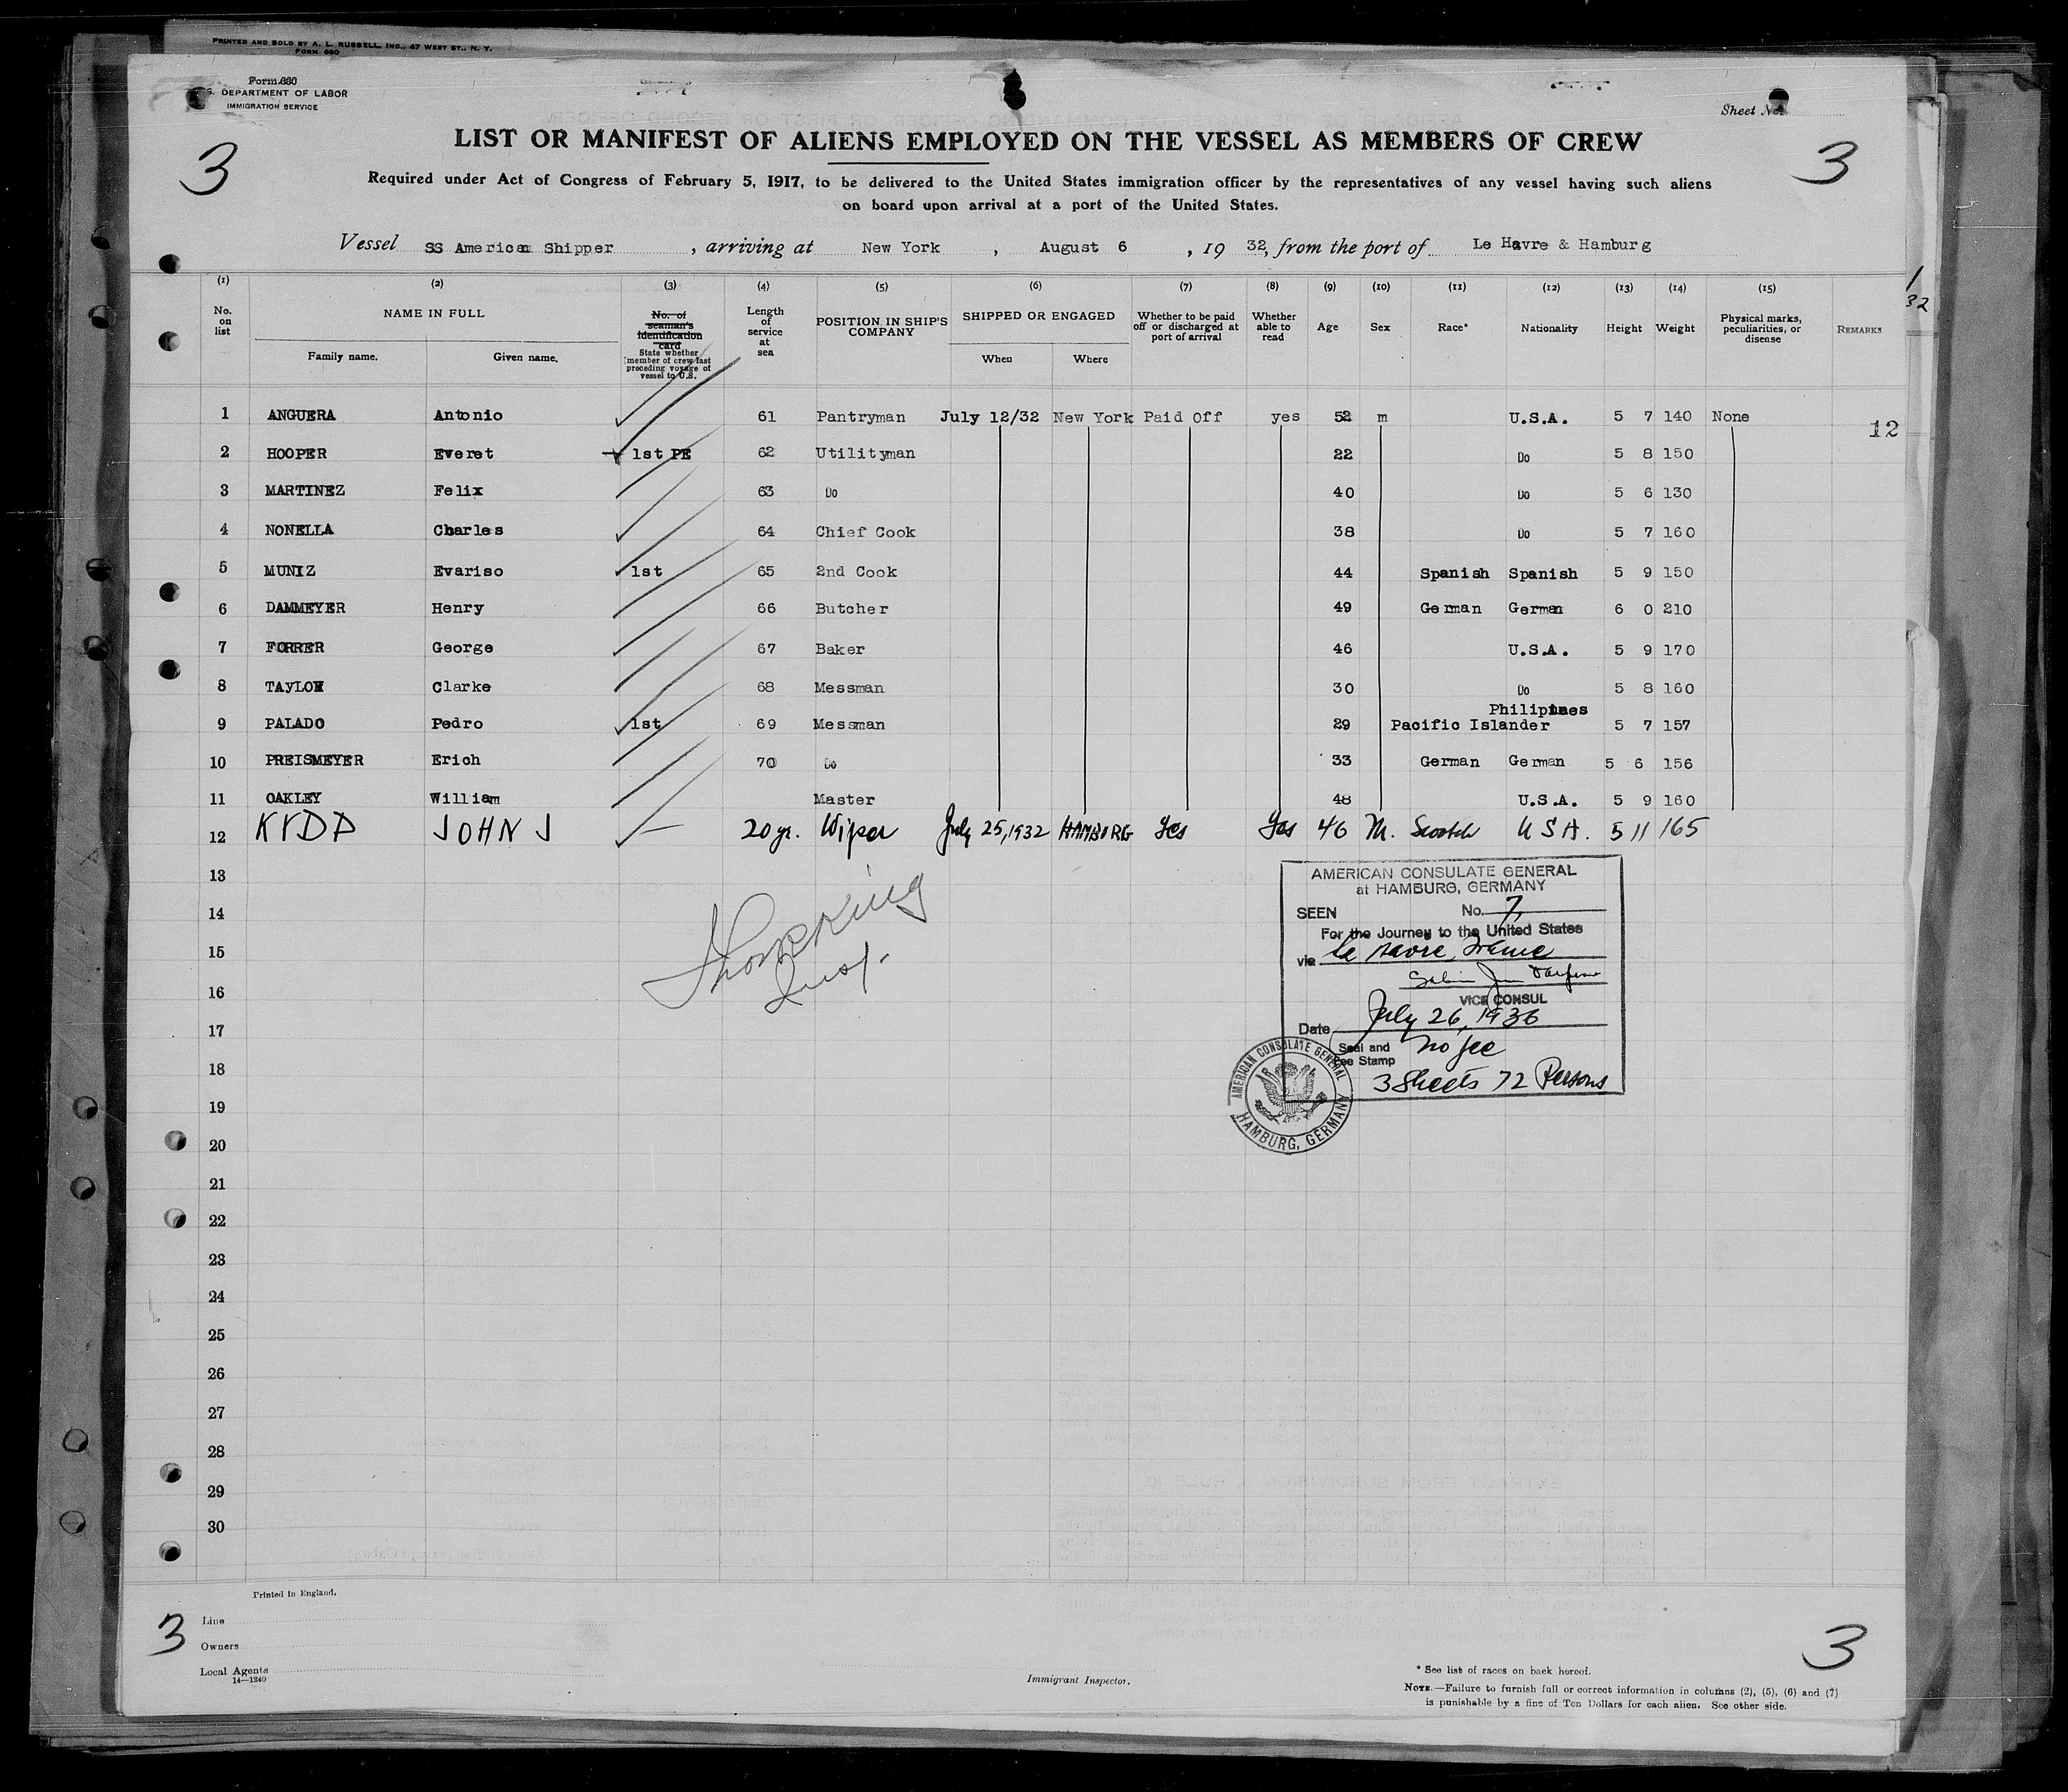 PRINTED AND SOLD BY A. L. RUSSELL, INC., 47 WEST ST., N. Y.
FORM 680
Form 680
S. DEPARTMENT OF LABOR
IMMIGRATION SERVICE
Sheet No.
3 3
LIST OR MANIFEST OF ALIENS EMPLOYED ON THE VESSEL AS MEMBERS OF CREW
Required under Act of Congress of February 5, 1917, to be delivered to the United States immigration officer by the representatives of any vessel having such aliens
on board upon arrival at a port of the United States.
Vessel SS American Shipper, arriving at New York, August 6, 1932, from the port of Le Havre & Hamburg
(1) (2) (3) (4) (5) (6) (7) (8) (9) (10) (11) (12) (13) (14) (15)
No. on list
NAME IN FULL
Family name. Given name.
No. of seaman's identification card
State whether member of crew last preceding voyage of vessel to U.S.
Length of service at sea
POSITION IN SHIP'S COMPANY
SHIPPED OR ENGAGED
When Where
Whether to be paid off or discharged at port of arrival
Whether able to read
Age
Sex
Race*
Nationality
Height
Weight
Physical marks, peculiarities, or disease
REMARKS
1
32
1 ANGUERA Antonio 61 Pantryman July 12/32 New York Paid Off yes 52 m U.S.A. 5 7 140 None
12
2 HOOPER Everet 1st PE 62 Utilityman 22 Do 5 8 150
3 MARTINEZ Felix 63 Do 40 Do 5 6 130
4 NONELLA Charles 64 Chief Cook 38 Do 5 7 160
5 MUNIZ Evariso 1st 65 2nd Cook 44 Spanish Spanish 5 9 150
6 DAMMEYER Henry 66 Butcher 49 German German 6 0 210
7 FORRER George 67 Baker 46 U.S.A. 5 9 170
8 TAYLOR Clarke 68 Messman 30 Do 5 8 160
Philippines
9 PALADO Pedro 1st 69 Messman 29 Pacific Islander 5 7 157
10 PREISMEYER Erich 70 Do 33 German German 5 6 156
11 OAKLEY William Master 48 U.S.A. 5 9 160
12 KYDD JOHN J — 20 yr. Wiper July 25, 1932 HAMBURG Yes Yes 46 M. Scotch U S A. 5 11 165
13
14
15
16
17
18
19
20
21
22
23
24
25
26
27
28
29
30
AMERICAN CONSULATE GENERAL
at HAMBURG, GERMANY
SEEN No. 7,
For the Journey to the United States
via Le Havre, France
VICE CONSUL
Date July 26, 1936
Seal and Fee Stamp no fee
3 Sheets 72 Persons
AMERICAN CONSULATE GENERAL
HAMBURG, GERMANY
Printed in England.
Line
Owners
Local Agents
14—1240
3 3
Immigrant Inspector.
* See list of races on back hereof.
NOTE.—Failure to furnish full or correct information in columns (2), (5), (6) and (7)
is punishable by a fine of Ten Dollars for each alien. See other side.